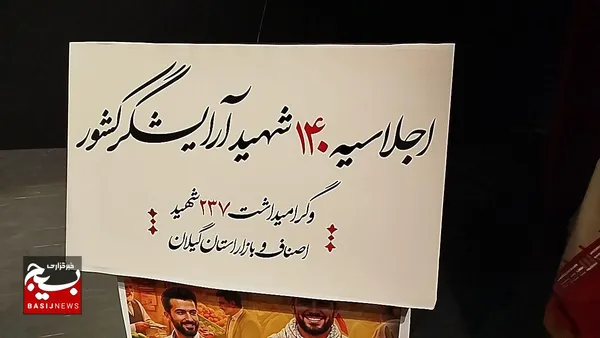 اجلاسیه ۱۴۰ شهید آرایشگر کشور
و گرامیداشت ۲۳۷ شهید
اصناف و بازار استان گیلان
خبرگزاری
بسیج
BASIJNEWS